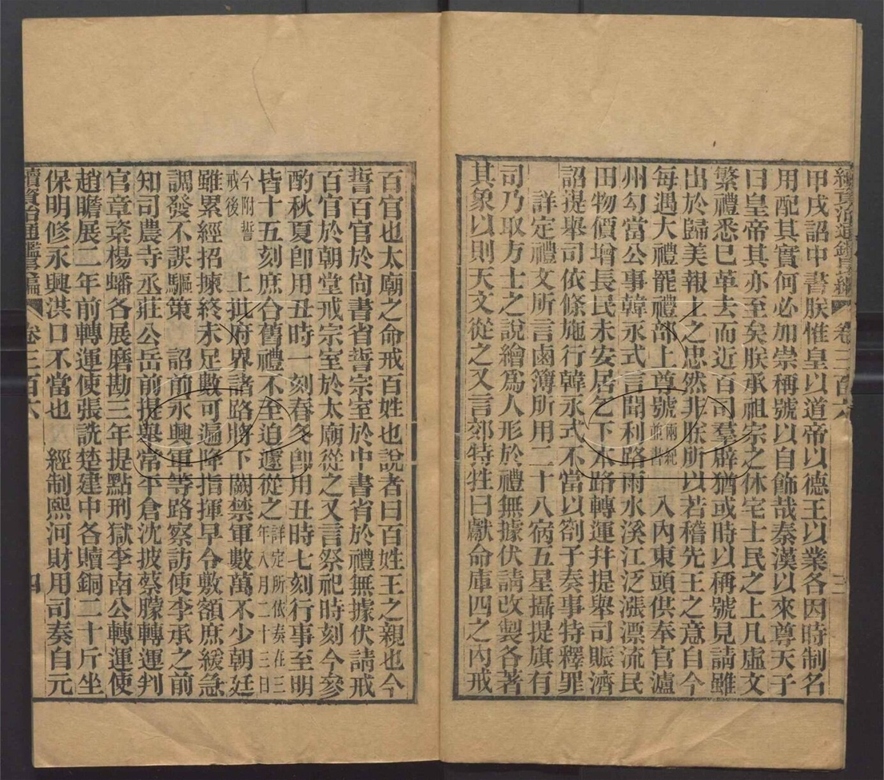 甲戌詔中書朕惟皇以道帝以德王以業各因時制名
用配其實何必加崇稱號以自飾哉秦漢以來尊天子
曰皇帝其亦至矣朕承祖宗之休宅士民之上凡虛文
繁禮悉已革去而近百司羣辟猶或時以稱號見請雖
出於歸美報上之忠然非朕所以若稽先王之意自今
每遇大禮罷禮部上尊號兩紀並書入內東頭供奉官瀘
州勾當公事韓永式言聞利路雨水溪江泛漲漂流民
田物價增長民未安居乞下本路轉運并提舉司賑濟
詔提舉司依條施行韓永式不當以劄子奏事特釋罪
詳定禮文所言鹵簿所用二十八宿五星攝提旗有
司乃取方士之說繪爲人形於禮無據伏請改製各著
其象以則天文從之又言郊特牲曰獻命庫四之內戒
續資治通鑑長編 卷三百六 三
百官也太廟之命戒百姓也說者曰百姓王之親也今
誓百官於尚書省誓宗室於中書省於禮無據伏請戒
百官於朝堂戒宗室於太廟從之又言祭祀時刻今參
酌秋夏卽用丑時一刻春冬卽用丑時七刻行事至明
皆十五刻庶合舊禮不至迫遽從之詳定所依奏在三年八月二十三日
今附誓戒後 上批府界諸路將下闕禁軍數萬不少朝廷
雖累經招揀終未足數可遍降指揮早令敷額庶緩急
調發不誤驅策 詔前永興軍等路察訪使李承之前
知司農寺丞莊公岳前提舉常平倉沈披蔡朦轉運判
官章楶楊蟠各展磨勘三年提點刑獄李南公轉運使
趙瞻展二年前轉運使張詵楚建中各贖銅二十斤坐
保明修永興洪口不當也 經制熙河財用司奏自元
續資治通鑑長編 卷三百六 四